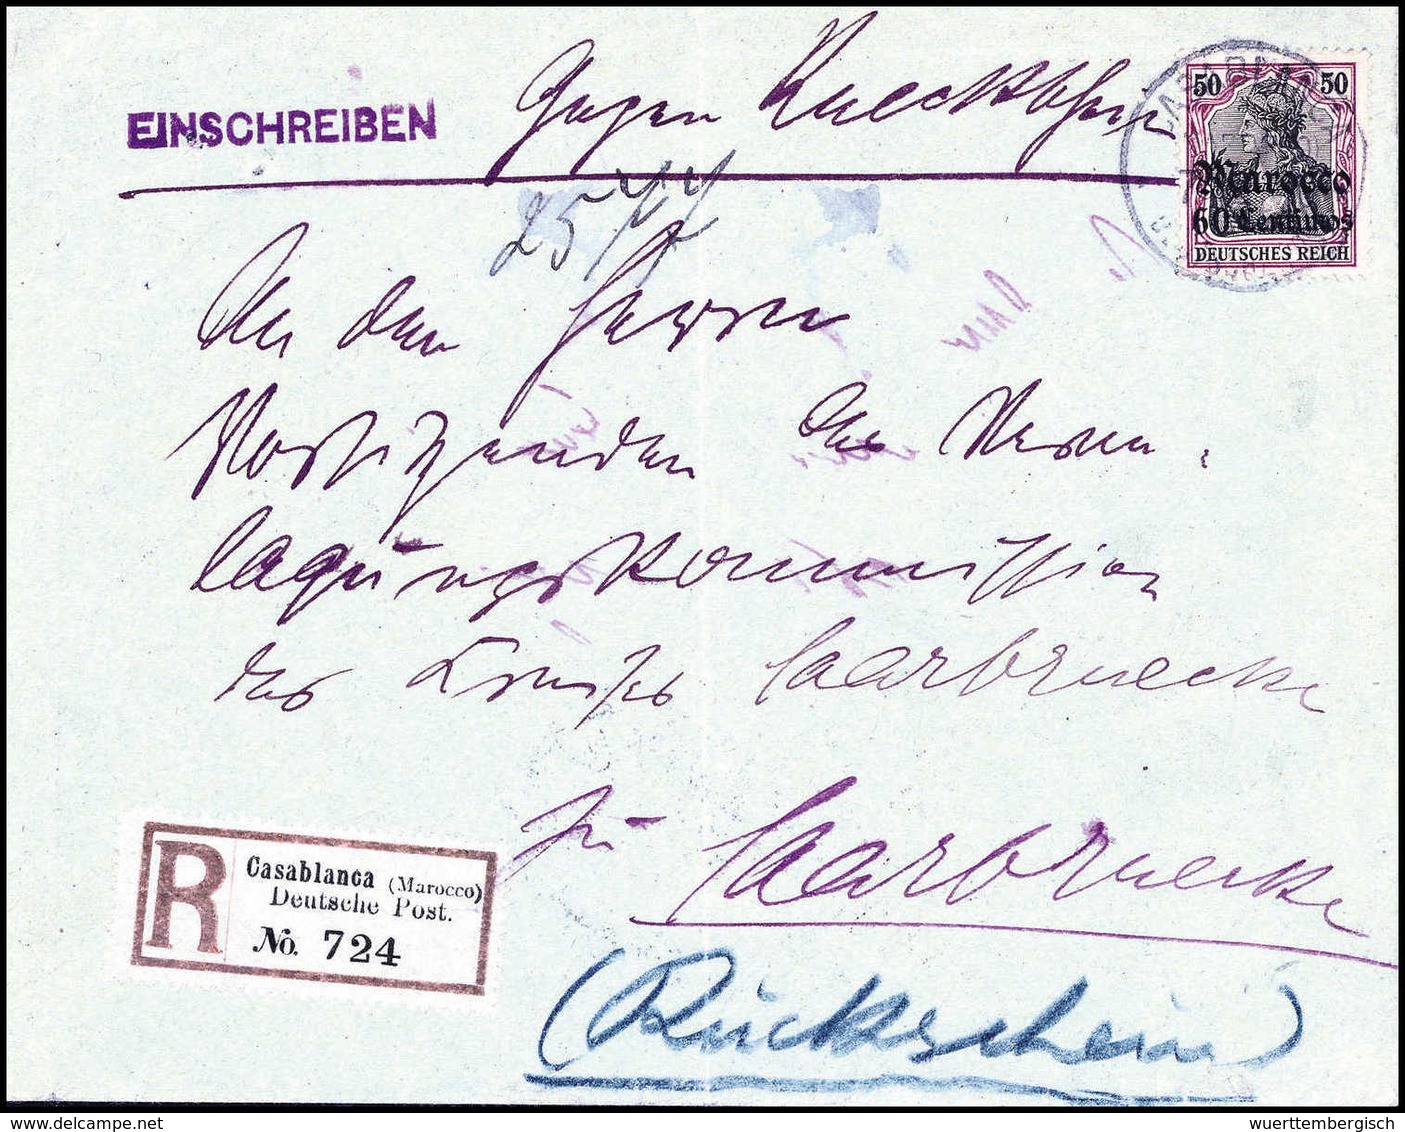 EINSCHREIBEN
Gegen Rueckschein
50 50
Marocco
60 Centimos
DEUTSCHES REICH
An den Herrn
Vorsitzenden der Veran-
lagungskommission
des Kreises Saarbruecken
zu Saarbruecken
R
Casablanca (Marocco)
Deutsche Post.
No. 724
(Rückschein)
delcampe.net
wuerttembergisch